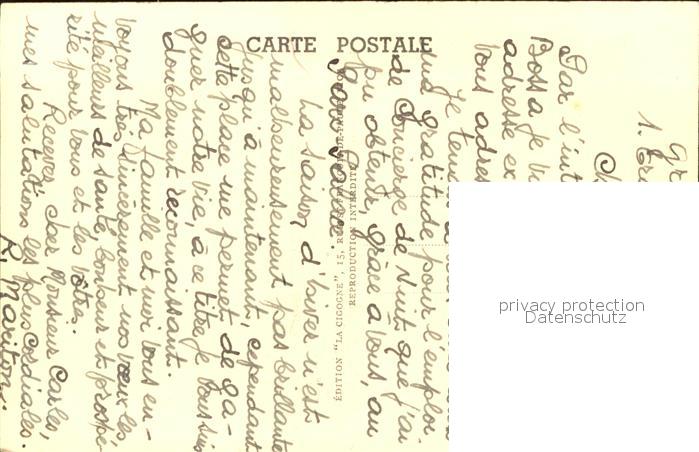 CARTE POSTALE
Gr
1.
Ch
Par l'int
Bossa je
adresse ex
Vous adres
Je tien
ma gratitude pour l'emploi
de Concierge de Nuit que j'ai
pu obtenir, grâce à vous, au
La saison d'hiver n'est
malheureusement pas brillante
jusqu'à maintenant, cependant
cette place me permet de ga-
gner notre vie, à ce titre je vous suis
doublement reconnaissant.
Ma famille et moi vous en-
voyons très sincèrement nos vœux les
meilleurs de santé, bonheur et prospé-
rité pour vous et les vôtres.
Recevez cher Monsieur Carles,
mes salutations les plus cordiales.
R. Mariton.
ÉDITION "LA CIGOGNE", 15,
REPRODUCTION INTERDITE
privacy protection
Datenschutz